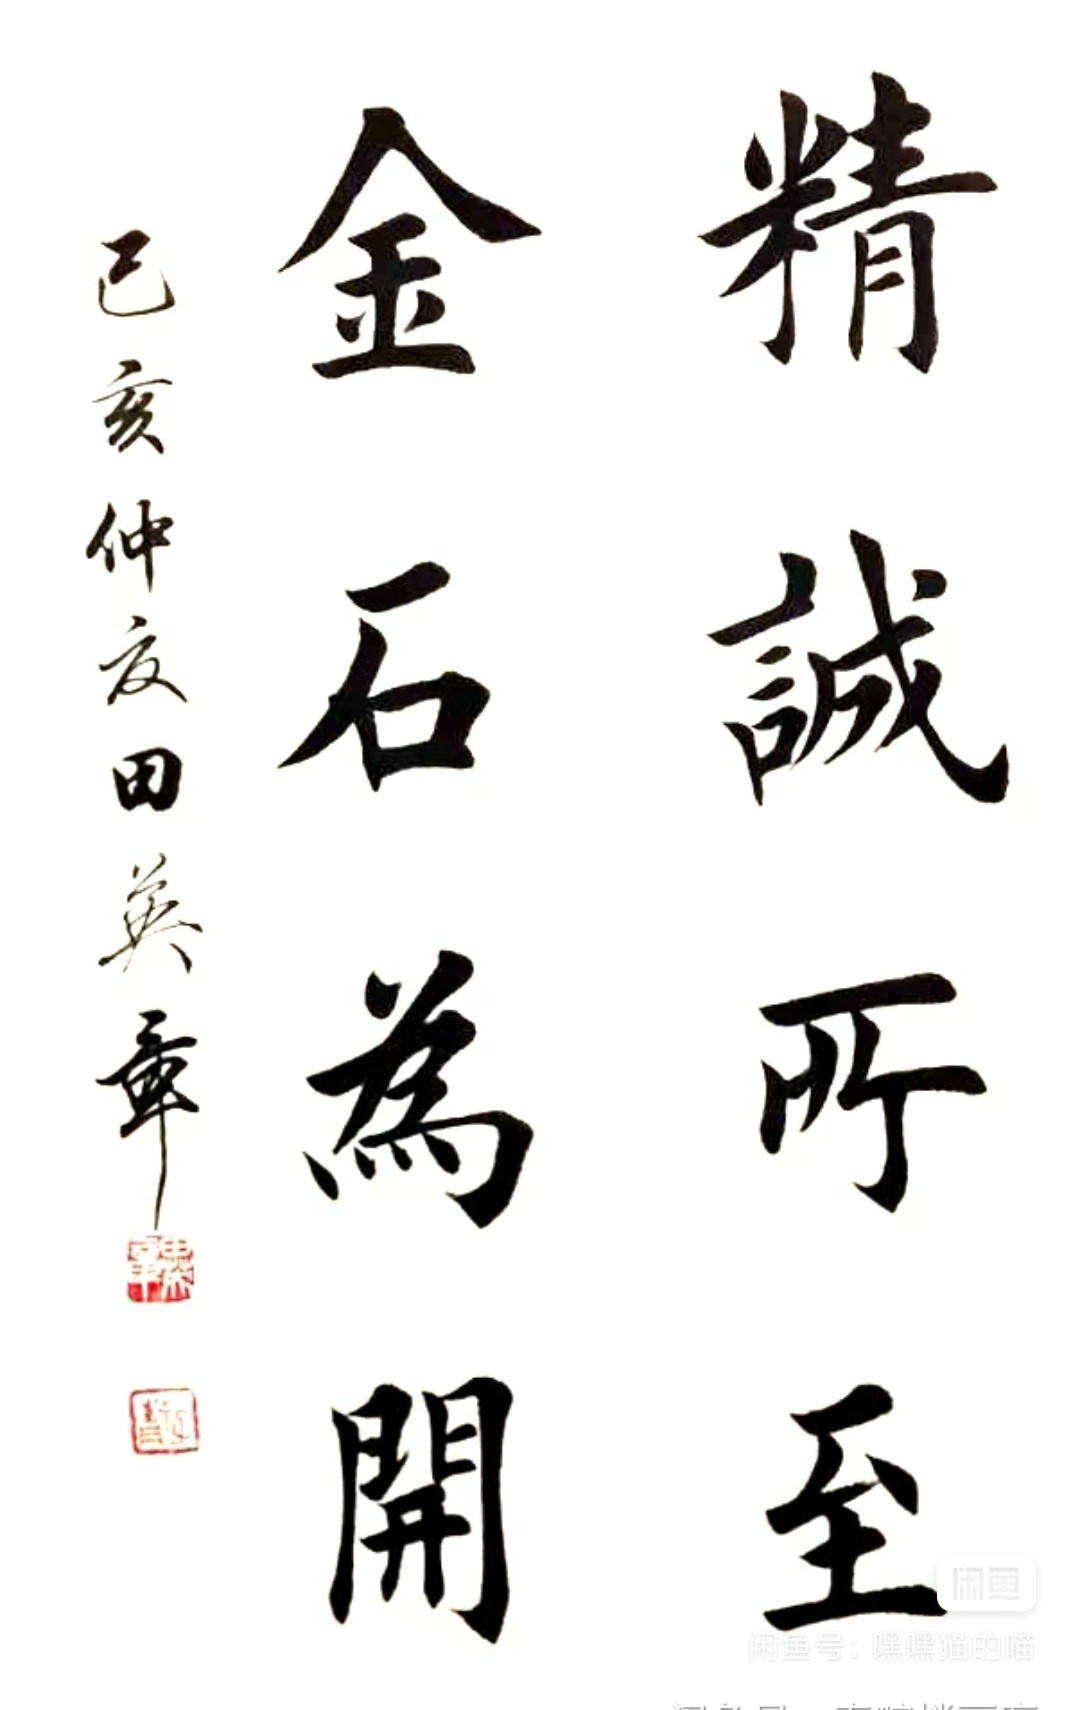 精誠所至
金石為開
己亥仲夏田英章
闲鱼
闲鱼号：嘿嘿猫的喵